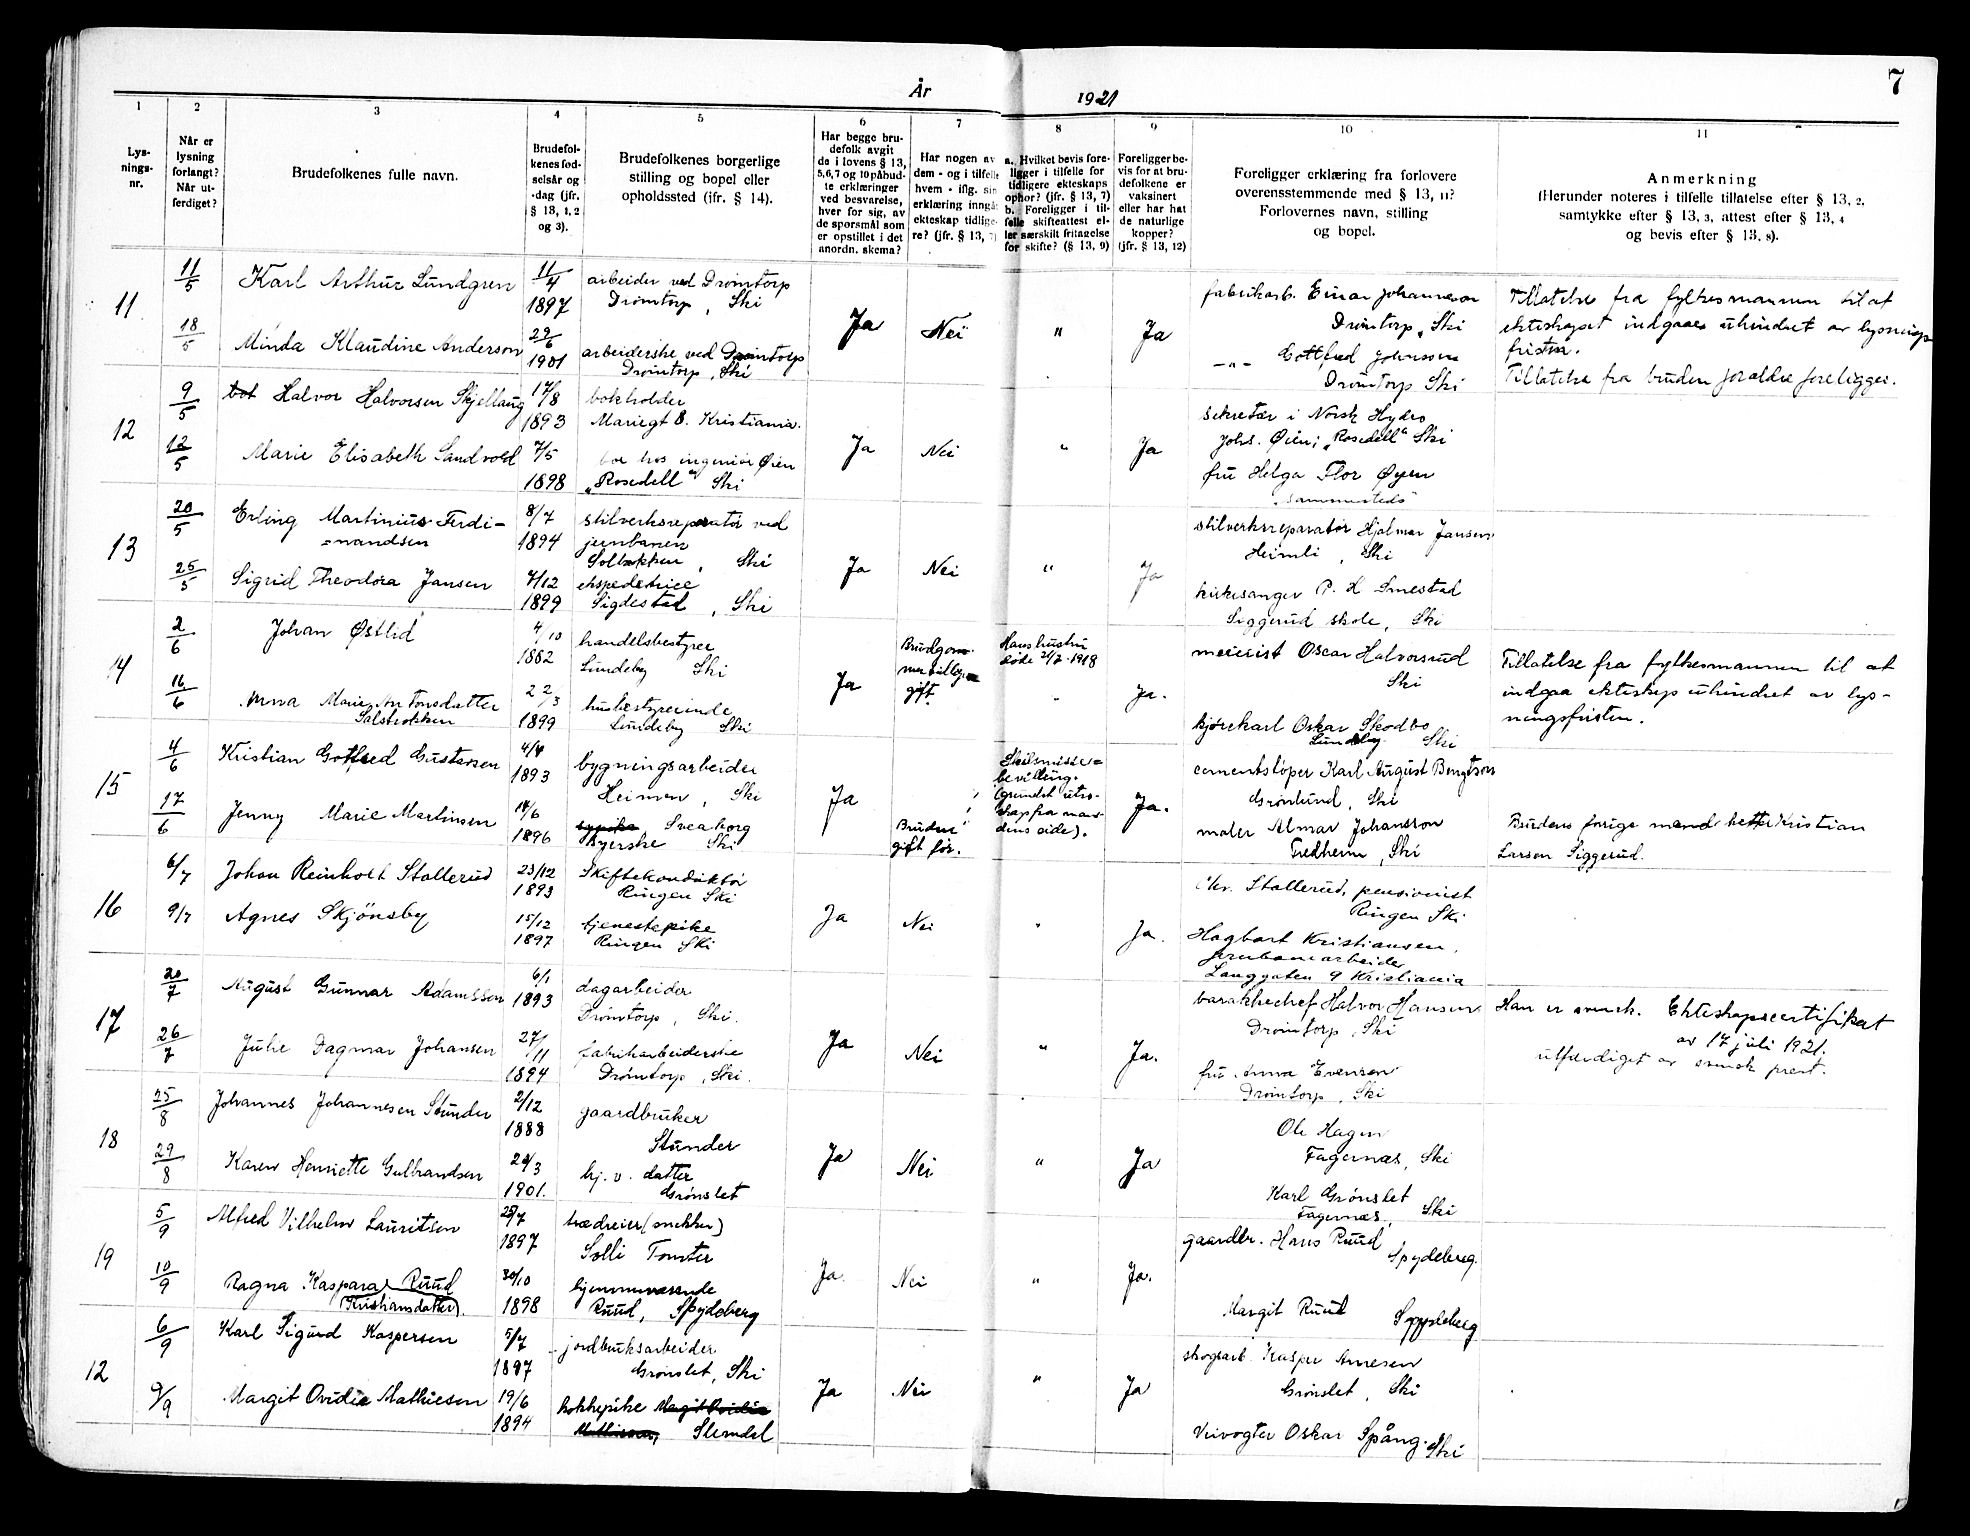 7
År 1921
1
Lys-
nings-
nr.
2
Når er
lysning
forlangt?
Når ut-
ferdiget?
3
Brudefolkenes fulle navn.
4
Brudefol-
kenes fød-
selsår og
-dag (jfr.
§ 13, 1, 2
og 3).
5
Brudefolkenes borgerlige
stilling og bopel eller
opholdssted (jfr. § 14).
6
Har begge bru-
defolk avgit
de i lovens § 13,
5,6,7 og 10 påbud-
te erklæringer
ved besvarelse,
hver for sig, av
de spørsmål som
er opstillet i det
anordn. skema?
7
Har nogen av
dem - og i tilfelle
hvem - iflg. sin
erklæring inngå
ekteskap tidlige-
re? (jfr. § 13, 7)
8
a. Hvilket bevis fore-
ligger i tilfelle for
tidligere ekteskaps
ophør? (jfr. § 13, 7)
b. Foreligger i til-
felle skifteattest el-
ler særskilt fritagelse
for skifte? (§ 13, 9)
9
Foreligger be-
vis for at bru-
defolkene er
vaksinert
eller har hat
de naturlige
kopper?
(jfr. § 13, 12)
10
Foreligger erklæring fra forlovere
overensstemmende med § 13, 11?
Forlovernes navn, stilling
og bopel.
11
Anmerkning
(Herunder noteres i tilfelle tillatelse efter § 13, 2.
samtykke efter § 13, 3, attest efter § 13, 4
og bevis efter § 13, 8).
11
11/5
18/5
Karl Arthur Lundgren
Minda Klaudine Anderson
11/4
1897
29/6
1901
arbeider ved Drømtorp
Drømtorp, Ski
arbeiderske ved Drømtorp
Drømtorp, Ski
Ja
Nei
"
Ja
fabrikarb. Einar Johannesson
Drømtorp, Ski
—"— Gottfred Johnsson
Drømtorp Ski
Tillatelse fra fylkesmannen til at
ekteskapet indgaaes uhindret av lysnings
fristen.
Tillatelse fra bruden foraldre foreligger.
12
9/5
12/5
Halvor Halvorsen Skjellaug
Marie Elisabeth Sandvold
17/8
1893
7/5
1898
bokholder
Mariegt 8. Kristiania.
bor hos ingeniør Øien
„Rosedell" Ski
Ja
Nei
"
Ja
sekretær i Norsk Hydro
Johs. Øien, „Rosedell" Ski
fru Helga Flor Øyen
"sammesteds"
13
20/5
25/5
Erling Martinius Ferdi-
nandsen
Sigrid Theodora Jansen
8/7
1894
7/12
1899
stilverksreparatør ved
jernbanen
Solbakken, Ski
ekspeditrice
Sigdestad, Ski
Ja
Nei
"
Ja
stilverksreparatør Hjalmar Jansen
Heimli, Ski
kirkesanger P. H Smestad
Siggerud skole, Ski
14
2/6
16/6
Johan Østlid
Anna Marie Antonsdatter
4/10
1882
22/3
1899
handelsbestyrer
Lundeby Ski
husbestyrerinde
Lundeby Ski
Ja
Brudgom-
men tidligere
gift.
Hans hustru
døde 21/2 1918
Ja.
meierist Oscar Halvorsrud
Ski
kjørekarl Oskar Skodbo
Lundeby Ski
Tillatelse fra fylkesmannen til at
indgaa ekteskap uhindret av lys-
ningsfristen.
15
4/6
17/6
Kristian Gotfred Gustavsen
Jenny Marie Martinsen
4/4
1893
14/6
1896
bygningsarbeider
Heimen, Ski
Sveaborg
syerske Ski
Ja
Bruden
gift før.
Skilsmisse-
bevilling.
(grundet utro-
skap fra man-
dens side).
Ja.
cementstøper Karl August Bengtson
Grønlund, Ski
maler Almar Johansson
Fredheim, Ski
Brudens forige mand hetter Kristian
Larsen Siggerud.
16
6/7
9/7
Johan Reinholt Stallerud
Agnes Skjönsby
23/12
1893
15/12
1897
Skiftekonduktør
Ringen Ski
tjenestepike
Ringen Ski
Ja
Nei
"
Ja.
Chr. Stallerud, pensionist
Ringen Ski
Hagbart Kristiansen,
jernbanearbeider
Langgaten 9 Kristiania
17
20/7
26/7
August Gunnar Adamsson
Julie Dagmar Johansen
6/1
1893
27/11
1894
dagarbeider
Drømtorp, Ski.
fabrikarbeiderske
Drømtorp, Ski.
Ja
Nei
"
Ja.
barakkechef Halvor Hansen
Drømtorp, Ski
fru Anna Evensen
Drømtorp, Ski
Han er svensk. Ekteskapscertifikat
av 17 juli 1921.
utfærdiget av svensk prest.
18
25/8
29/8
Johannes Johannesen Stunder
Karen Henriette Gulbrandsen
2/12
1888
20/3
1901.
gaardbruker
Stunder
hj. v. datter
Grønslet
Ja
Nei
"
Ja
Ole Hagen
Fagernæs, Ski
Karl Grønslet
Fagernæs, Ski
19
5/9
10/9
Alfred Vilhelm Lauritsen
Ragna Kaspara Ruud
(Kristiansdatter).
25/7
1897
30/10
1898
trædreier (snekker)
Solli Tomter
hjemmeværende
Ruud, Spydeberg
Ja.
Nei
"
Ja.
gaardbr. Hans Ruud
Spydeberg.
Margit Ruud
Spydeberg
12
6/9
9/9
Karl Sigurd Kaspersen
Margit Ovidia Mathiesen
5/7
1897
19/6
1894
jordbruksarbeider
Grønslet, Ski
kokkepike Margit Ovidia
Mathiesen, Slemdal
Ja
Nei
"
Ja
skogsarb. Kasper Arnesen
Grønslet, Ski
Veivogter Oskar Spång. Ski